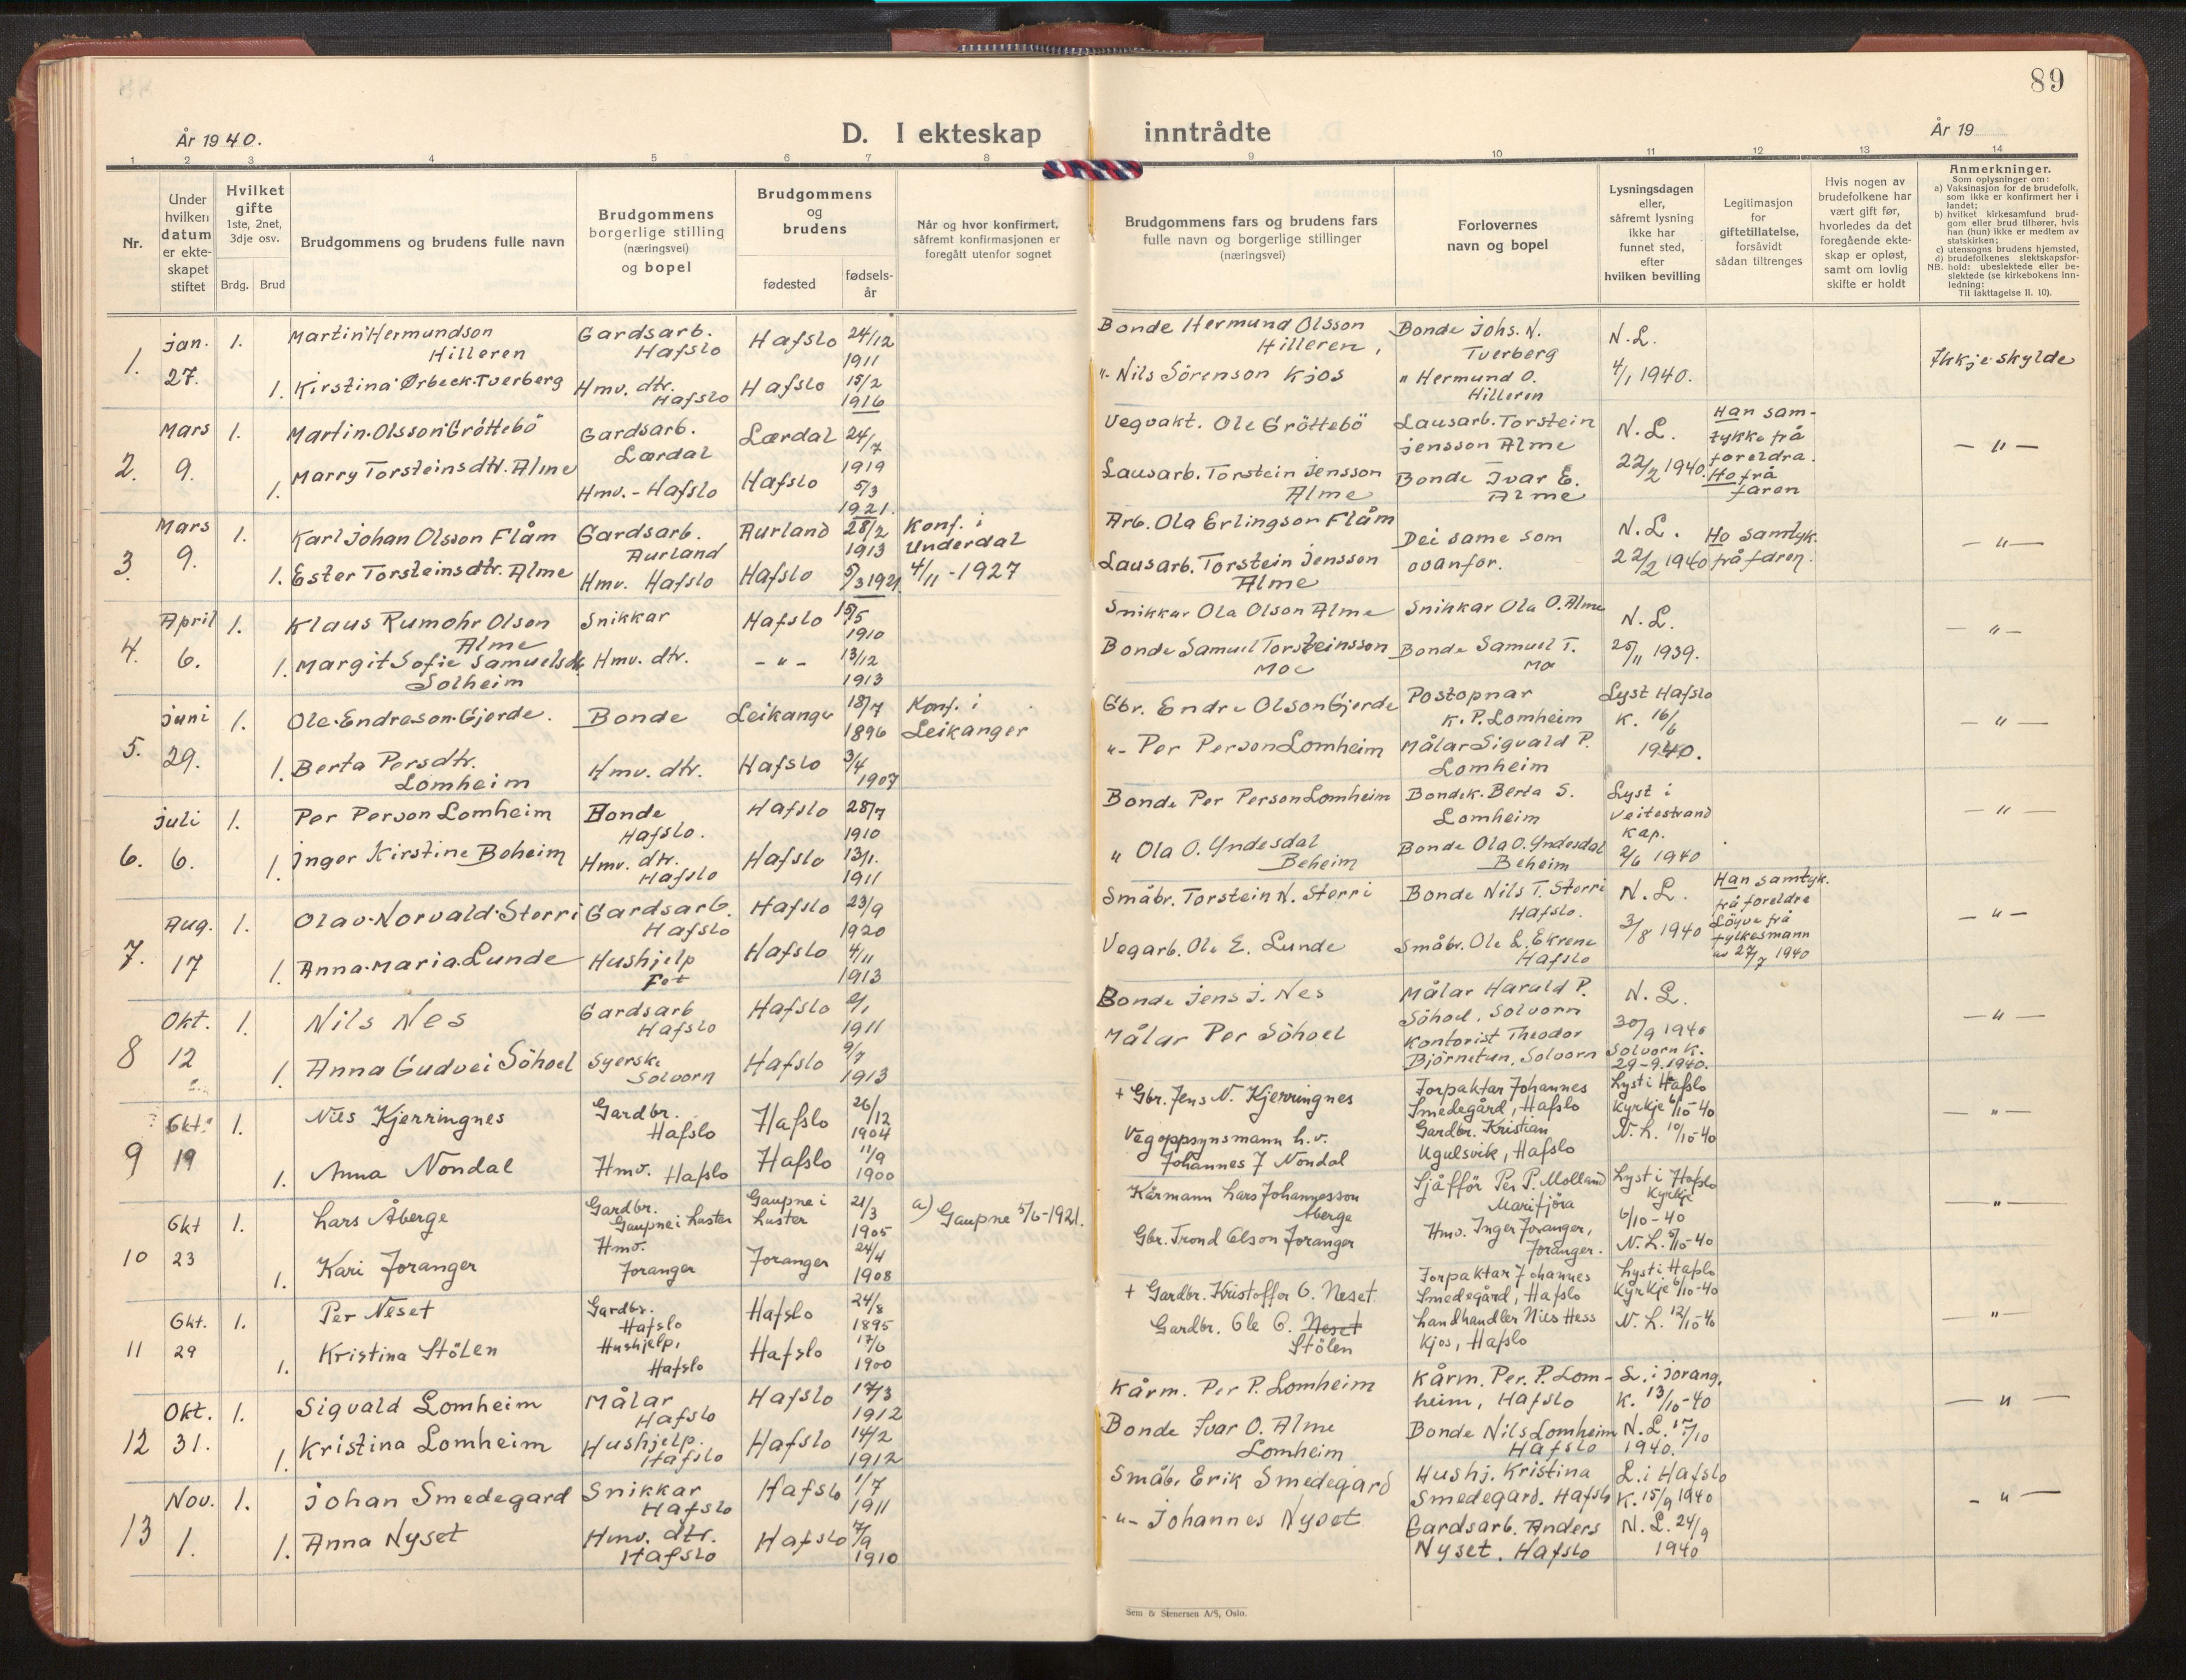 89
År 1940.
D. I ekteskap inntrådte
År 19
1 2 3 4 5 6 7 8 9 10 11 12 13 14
Nr.
Under
hvilken
datum
er ekte-
skapet
stiftet
Hvilket
gifte
1ste, 2net,
3dje osv.
Brdg. Brud
Brudgommens og brudens fulle navn
Brudgommens
borgerlige stilling
(næringsvei)
og bopel
Brudgommens
og
brudens
fødested
fødsels-
år
Når og hvor konfirmert,
såfremt konfirmasjonen er
foregått utenfor sognet
Brudgommens fars og brudens fars
fulle navn og borgerlige stillinger
(næringsvei)
Forlovernes
navn og bopel
Lysningsdagen
eller,
såfremt lysning
ikke har
funnet sted,
efter
hvilken bevilling
Legitimasjon
for
giftetillatelse,
forsåvidt
sådan tiltrenges
Hvis nogen av
brudefolkene har
vært gift før,
hvorledes da det
foregående ekte-
skap er opløst,
samt om lovlig
skifte er holdt
Anmerkninger.
Som oplysninger om:
a) Vaksinasjon for de brudefolk,
som ikke er konfirmert her i
landet;
b) hvilket kirkesamfund brud-
gom eller brud tilhører, hvis
han (hun) ikke er medlem av
statskirken;
c) utensogns brudens hjemsted,
d) brudefolkenes slektskapsfor-
NB. hold: ubeslektede eller be-
slektede (se kirkebokens inn-
ledning:
Til Iakttagelse II. 10).
1. jan. 27. 1. Martin Hermundson
Hilleren
Gardsarb.
Hafslo
Hafslo 24/12
1911
Bonde Hermund Olsson
Hilleren,
Bonde Johs. N.
Tverberg
N.L.
4/1 1940.
Ikkje skylde
1. Kirstina Ørbeck Tverberg
Hmv. dtr.
Hafslo
Hafslo 15/2
1916
"- Nils Sörenson Kjos
" Hermund O.
Hilleren
2. Mars 9. 1. Martin Olsson Gröttebö
Gardsarb.
Lærdal
Lærdal 24/7
1919
Vegvakt. Ole Gröttebö
Lausarb. Torstein
Jensson Alme
N.L.
22/2 1940.
Han sam-
tykke frå
foreldra.
Ho frå
faren
— " —
1. Marry Torsteinsdtr. Alme
Hmv. - Hafslo
Hafslo 5/3
1921.
Lausarb. Torstein Jensson
Alme
Bonde Ivar E.
Alme
3. Mars 9. 1. Karl Johan Olsson Flåm
Gardsarb.
Aurland
Aurland 28/2
1913
Konf. i
Underdal
4/11 - 1927
Arb. Ola Erlingson Flåm
Dei same som
ovanfor.
N.L.
22/2 1940
Ho samtyk.
frå faren.
— " —
1. Ester Torsteinsdtr. Alme
Hmv. Hafslo
Hafslo 5/3 1921.
Lausarb. Torstein Jensson
Alme
4. April 6. 1. Klaus Rumohr Olson
Alme
Snikkar
Hafslo 15/5
1910
Snikkar Ola Olson Alme
Snikkar Ola O. Alme
N.L.
25/11 1939.
— " —
1. Margit Sofie Samuelsdtr.
Solheim
Hmv. dtr.
— " — 13/12
1913
Bonde Samuel Torsteinsson
Moe
Bonde Samuel T.
Moe
5. Juni 29. 1. Ole Endreson Gjerde.
Bonde
Leikanger 18/7
1896
Konf. i
Leikanger
Gbr. Endre Olson Gjerde
Postopnar
K. P. Lomheim
Lyst Hafslo
K. 16/6
1940.
— " —
1. Berta Persdtr.
Lomheim
Hmv. dtr.
Hafslo 3/4
1907
"- Per Person Lomheim
Målar Sigvald P.
Lomheim
6. Juli 6. 1. Per Person Lomheim
Bonde
Hafslo.
Hafslo 28/7
1910
Bonde Per Person Lomheim
Bondek. Berta S.
Lomheim
Lyst i
Veitestrand
Kap.
2/6 1940
— " —
1. Inger Kirstine Beheim
Hmv. dtr.
Hafslo
Hafslo 13/1.
1911
" Ola O. Yndesdal
Beheim
Bonde Ola O. Yndesdal
Beheim
7. Aug. 17 1. Olav Norvald Sterri
Gardsarb.
Hafslo
Hafslo 23/9
1920
Småbr. Torstein N. Sterri
Bonde Nils T. Sterri
Hafslo.
N.L.
3/8 1940
Han samtyk.
frå foreldre
Löyve frå
fylkesmann
av 27/7 1940
— " —
1. Anna Maria Lunde
Hushjelp
Fet
Hafslo 4/11
1913
Vegarb. Ole E. Lunde
Småbr. Ole L. Ekrene
Hafslo
8 Okt. 12 1. Nils Nes
Gardsarb
Hafslo
Hafslo
1911
Bonde Jens J. Nes
Målar Harald P.
Söhoel, Solvorn
N.L.
30/9 1940
Solvorn K.
29-9.1940.
— " —
1. Anna Gudvei Söhoel
Syerske
Solvorn
Hafslo 9/7
1913
Målar Per Söhoel
Kontorist Theodor
Björnetun, Solvorn
9 Okt. 19 1. Nils Kjerringnes
Gardbr.
Hafslo
Hafslo 26/12
1904
+ Gbr. Jens N. Kjerringnes
Forpaktar Johannes
Smedegård, Hafslo
Lyst i Hafslo
Kyrkje 6/10-40
N.L. 10/10-40
— " —
1. Anna Nondal
Hmv. Hafslo
Hafslo 11/9
1900
Vegoppsynsmann h.v.
Johannes J Nondal
Gardbr. Kristian
Ugulsvik, Hafslo
10 Okt 23 1. Lars Åberge
Gardbr.
Gaupne i Luster
Gaupne i
Luster 21/3
1905
a) Gaupne 5/6-1921.
Kårmann Lars Johannesson
Åberge
Sjåfför Per P. Molland
Marifjöra
Lyst i Hafslo
Kyrkje
6/10-40
N.L. 5/10-40
— " —
1. Kari Joranger
Hmv.
Joranger
Joranger 24/4
1908
Gbr. Trond Olson Joranger
Hmv. Inger Joranger,
Joranger.
11 Okt. 29 1. Per Neset
Gardbr.
Hafslo
Hafslo 24/8
1895
+ Gardbr. Kristoffer O. Neset.
Forpaktar Johannes
Smedegård, Hafslo
Lyst i Hafslo
Kyrkje 6/10-40
N.L. 12/10-40
— " —
1. Kristina Stölen
Hushjelp,
Hafslo
Hafslo 17/6
1900
Gardbr. Ole O. Neset
Stölen
Landhandler Nils Hess
Kjos, Hafslo
12 Okt. 31. 1. Sigvald Lomheim
Målar
Hafslo
Hafslo 17/3
1912
Kårm. Per P. Lomheim
Kårm. Per. P. Lom-
heim, Hafslo
L. i Jorang.
K. 13/10-40
N.L. 17/10
1940.
— " —
1. Kristina Lomheim
Hushjelp.
Hafslo
Hafslo 14/2
1912
Bonde Ivar O. Alme
Lomheim
Bonde Nils Lomheim
Hafslo
13 Nov. 1. 1. Johan Smedegard
Snikkar
Hafslo
Hafslo 1/7
1911
Småbr. Erik Smedegård
Hushj. Kristina
Smedegard. Hafslo
L. i Hafslo
K. 15/9 1940
N.L. 24/9
1940
— " —
1. Anna Nyset
Hmv. dtr.
Hafslo
Hafslo 7/9
1910
-"- Johannes Nyset
Gardsarb. Anders
Nyset. Hafslo
Sem & Stenersen A/S, Oslo.